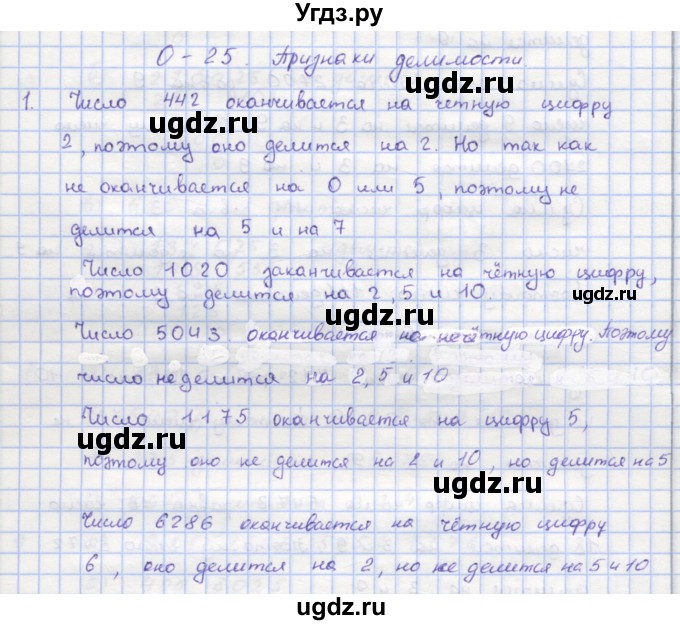 Угдз.ру
О - 25. Признаки делимости
ugdz.ru
1. Число 442 оканчивается на чётную цифру
ugdz.ru ugdz.ru
2, поэтому оно делится на 2. Но так как
не оканчивается на 0 или 5, поэтому не
ugdz.ru ugdz.ru
делится на 5 и на 7
Число 1020 заканчивается на чётную цифру,
поэтому делится на 2, 5 и 10.
ugdz.ru ugdz.ru
Число 5043 оканчивается на нечётную цифру. Поэтому
ugdz.ru
число не делится на 2, 5 и 10
Число 1175 оканчивается на цифру 5,
ugdz.ru
поэтому оно не делится на 2 и 10, но делится на 5
ugdz.ru
Число 6286 оканчивается на чётную цифру
ugdz.ru
6, оно делится на 2, но не делится на 5 и 10
ugdz.ru